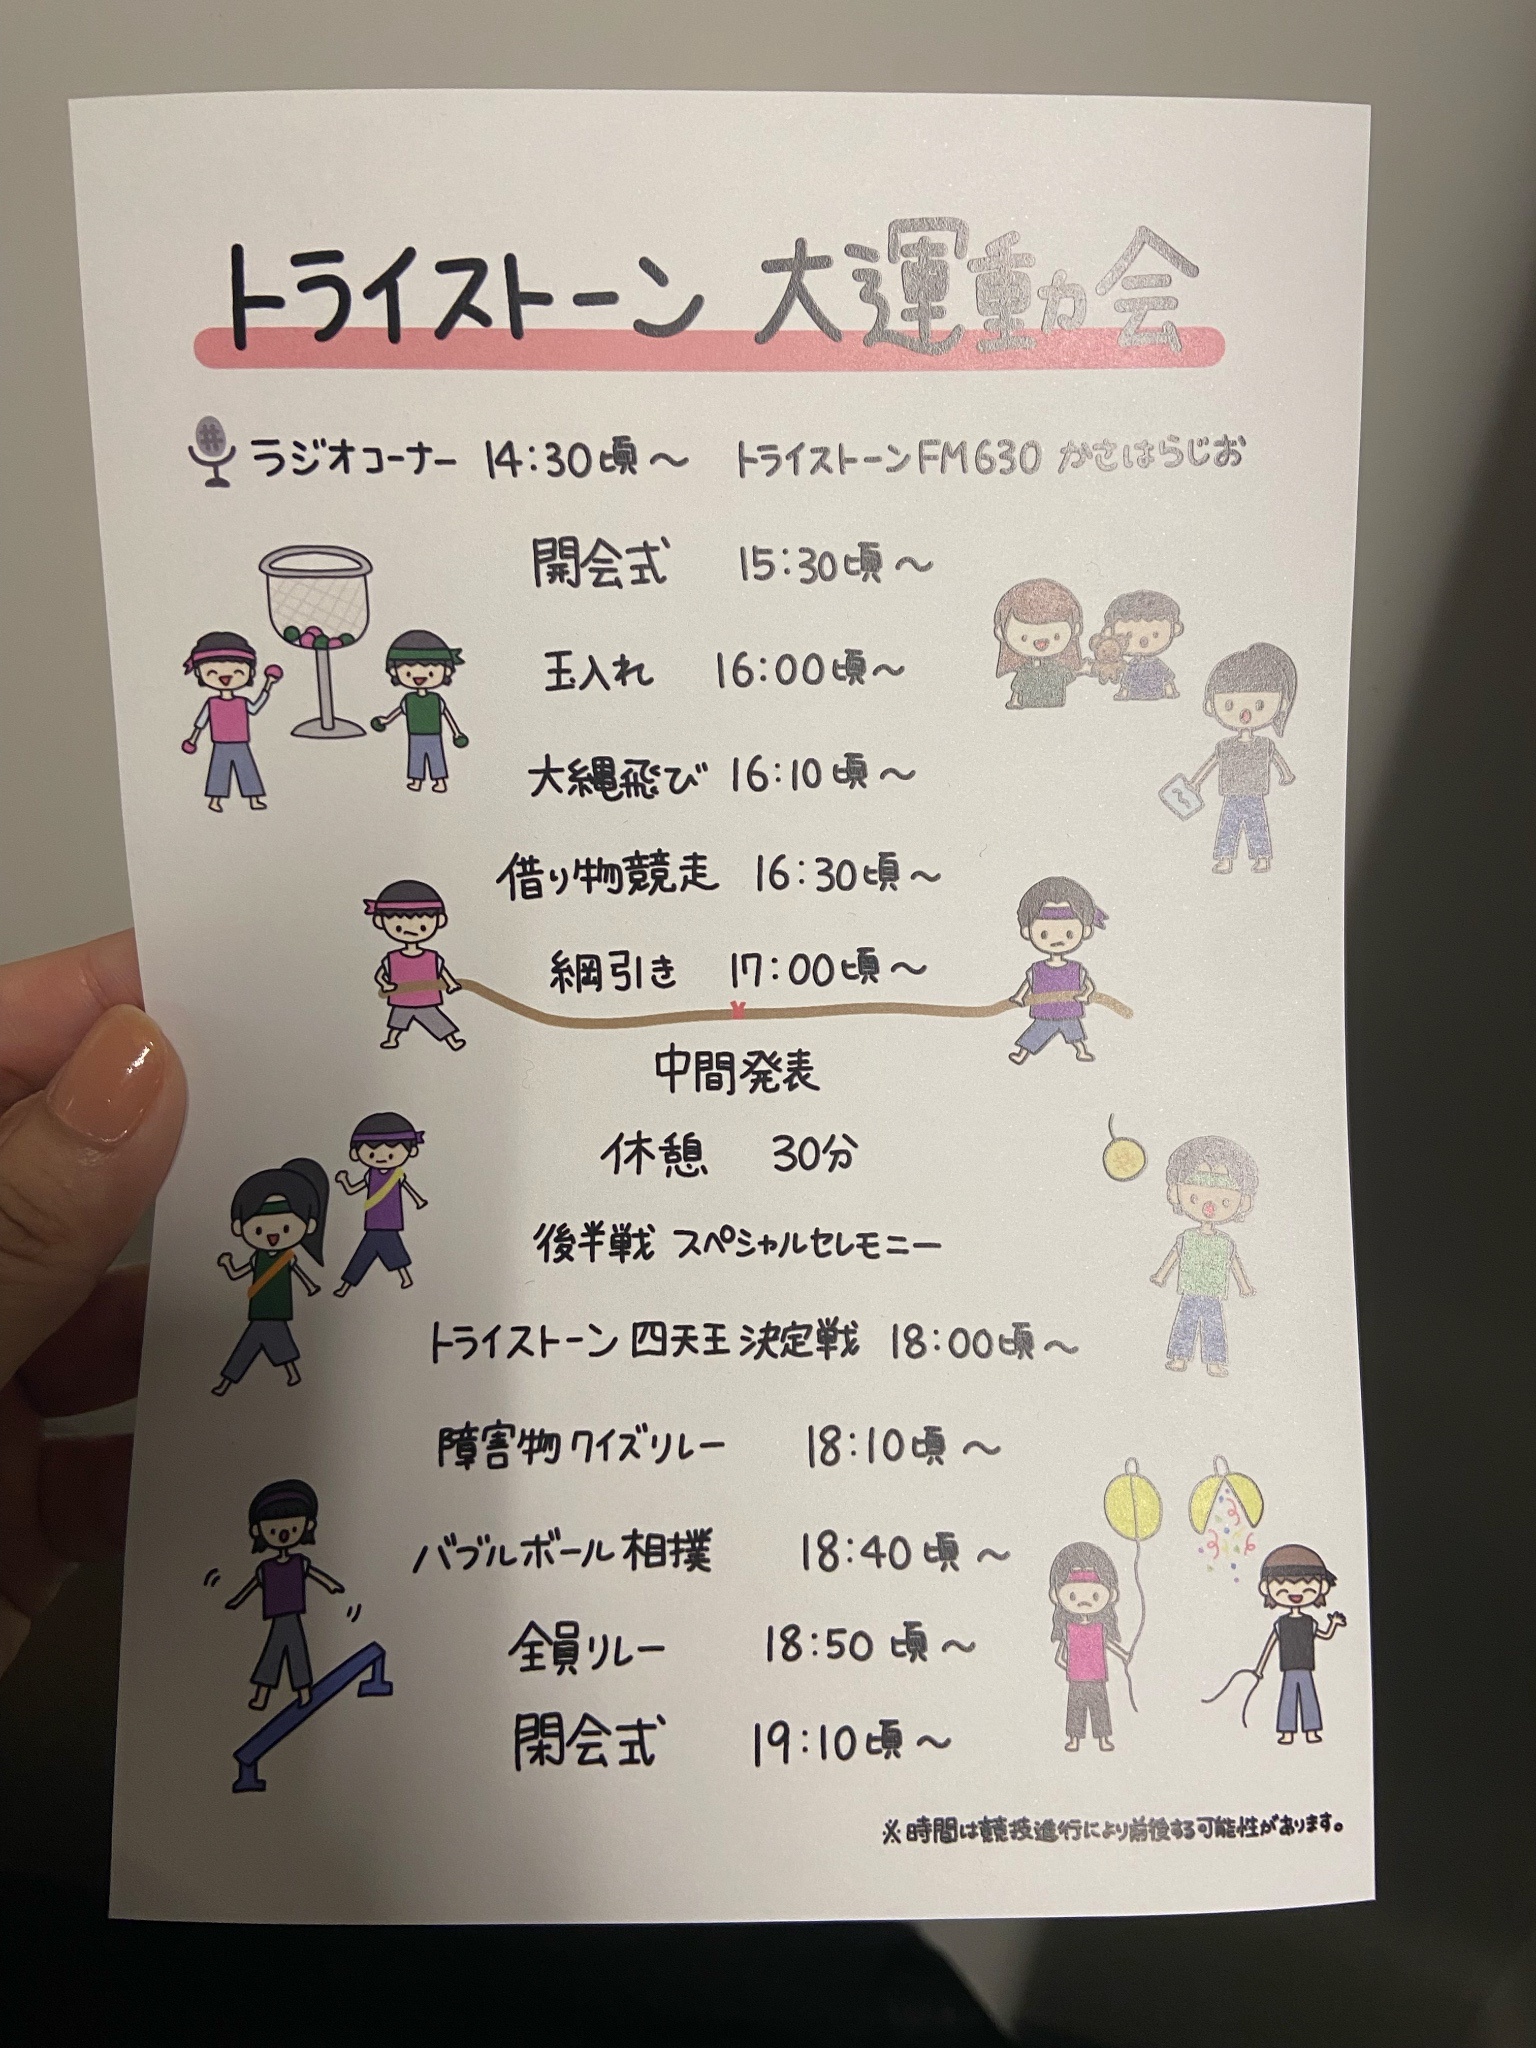 トライストーン 大運動会
ラジオコーナー 14:30頃〜 トライストーンFM630 かさはらじお
開会式 15:30頃〜
玉入れ 16:00頃〜
大縄飛び 16:10頃〜
借り物競走 16:30頃〜
綱引き 17:00頃〜
中間発表
休憩 30分
後半戦 スペシャルセレモニー
トライストーン 四天王 決定戦 18:00頃〜
障害物クイズリレー 18:10頃〜
バブルボール相撲 18:40頃〜
全員リレー 18:50頃〜
閉会式 19:10頃〜
※時間は競技進行により前後する可能性があります。